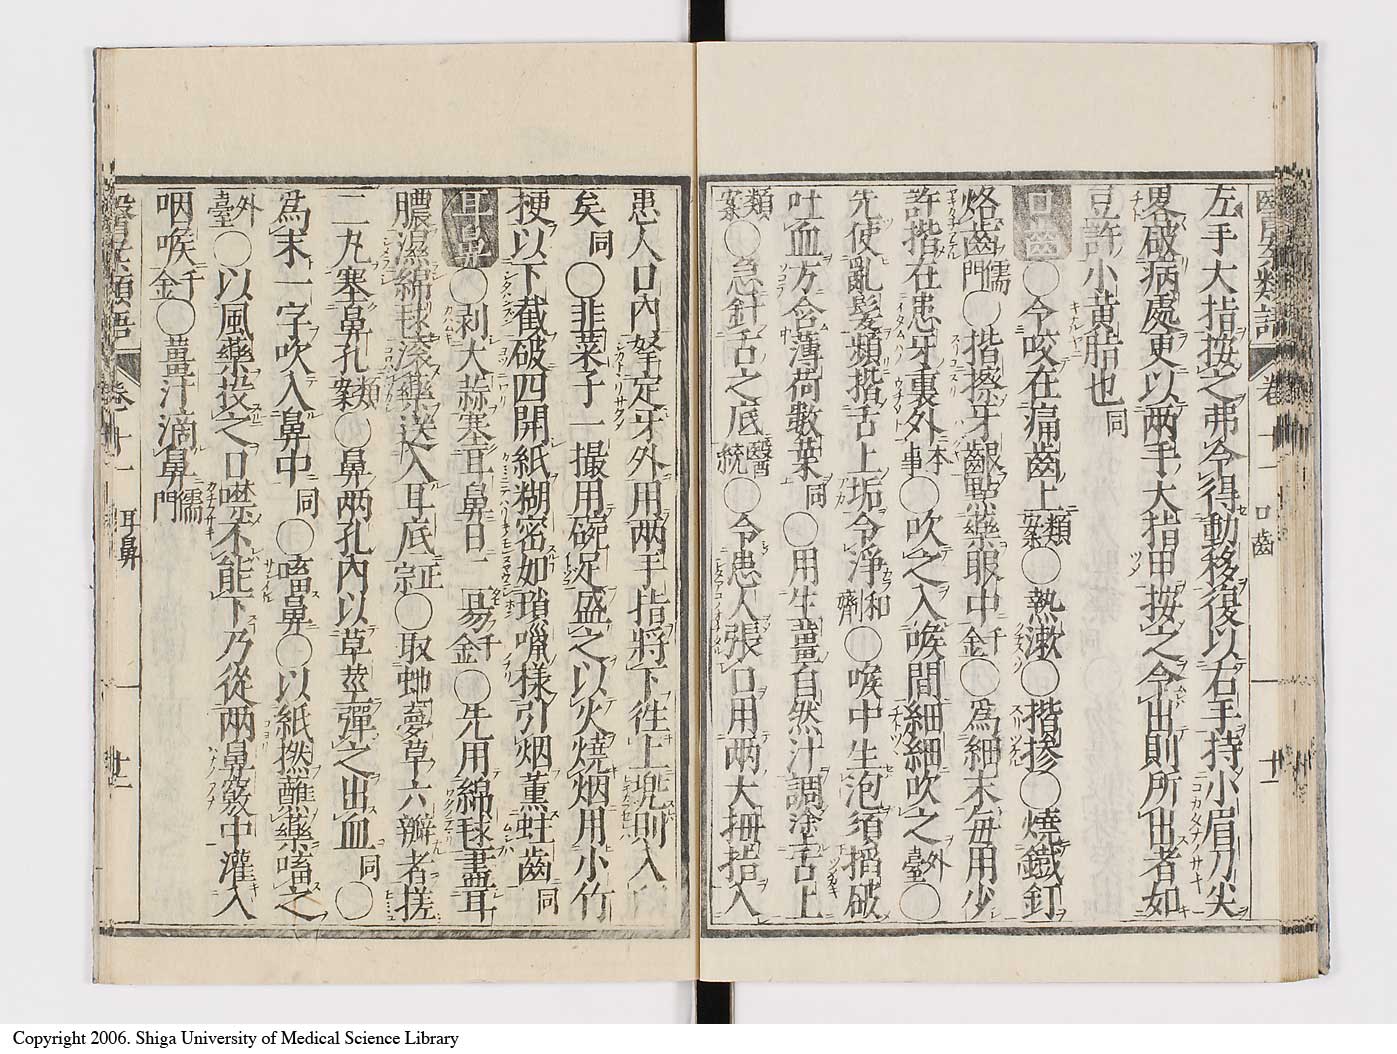 左手大指按之弗令得動移復以右手持小眉刀尖
畧破病處更以两手大指甲按之令出則所出者如
豆許小黄脂也同
口齒○令咬在痛齒上類案○熱漱○揩摻○燒鐵釘
烙齒儒門○揩擦牙齦點藥眼中千金○爲細末每用少
許揩在患牙裏外本事○吹之入喉間細細吹之外臺○
先使亂髮頻揩舌上垢令淨和劑○喉中生泡須搯破
吐血方含薄荷數葉同○用生薑自然汁調塗舌上
類案○急針舌之底醫統○令患人張口用两大拇指入
醫家類語 卷十一 口齒 十一 廿
患人口内拏定牙外用两手指將下徃上兠則入
矣同○韭菜子一撮用碗足盛之以火燒烟用小竹
梗以下截破四開紙糊密如瑣𠺕樣引烟薫蛀齒同
耳鼻○剥大蒜塞耳鼻日二易千金○先用綿毬盡耳
膿濕綿毬滚藥送入耳底正宗○取虵夢草六瓣者搓
二丸塞鼻孔類案○鼻两孔内以草莖彈之出血同○
爲末一字吹入鼻中同○㗜鼻○以紙撚蘸藥㗜之
外臺○以風藥投之口噤不能下乃從两鼻竅中灌入
咽喉千金○薑汁滴鼻儒門
醫家類語 卷十一 耳鼻 廿一
Copyright 2006. Shiga University of Medical Science Library